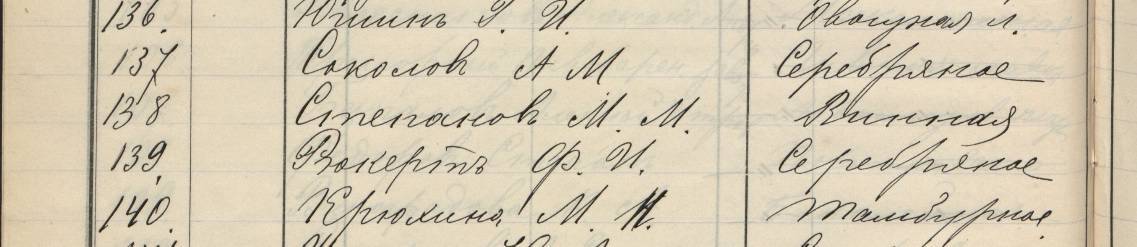 136. Юшинъ І. И. Овощная л.
137 Соколовъ А М Серебряное
138 Степановъ М. М. Винная
139. Рокертъ Ф. И. Серебряное
140. Крюхина М. И. Тамбурное